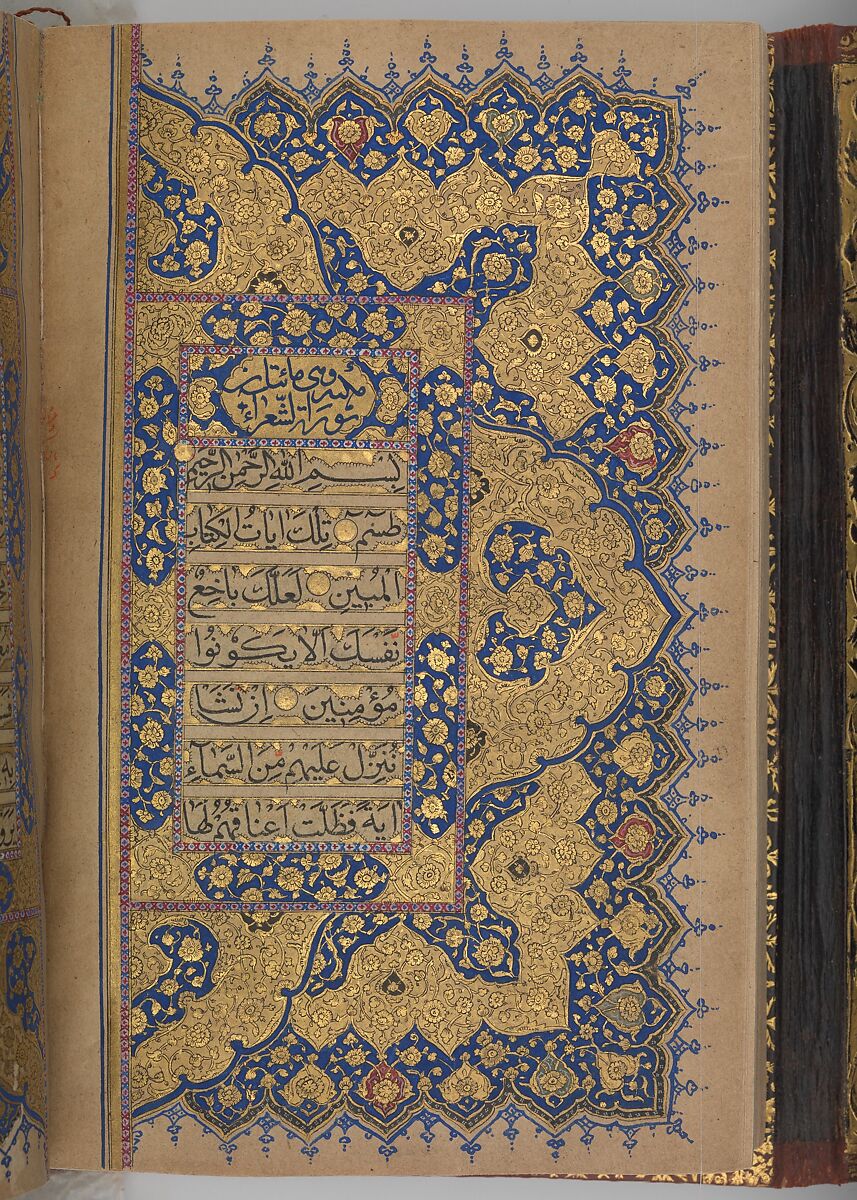 سورة الشعراء
بسم الله الرحمن الرحيم
طسم تلك ايات الكتاب
المبين لعلك باخع
نفسك الا يكونوا
مؤمنين ان نشا
ننزل عليهم من السماء
اية فظلت اعناقهم لها